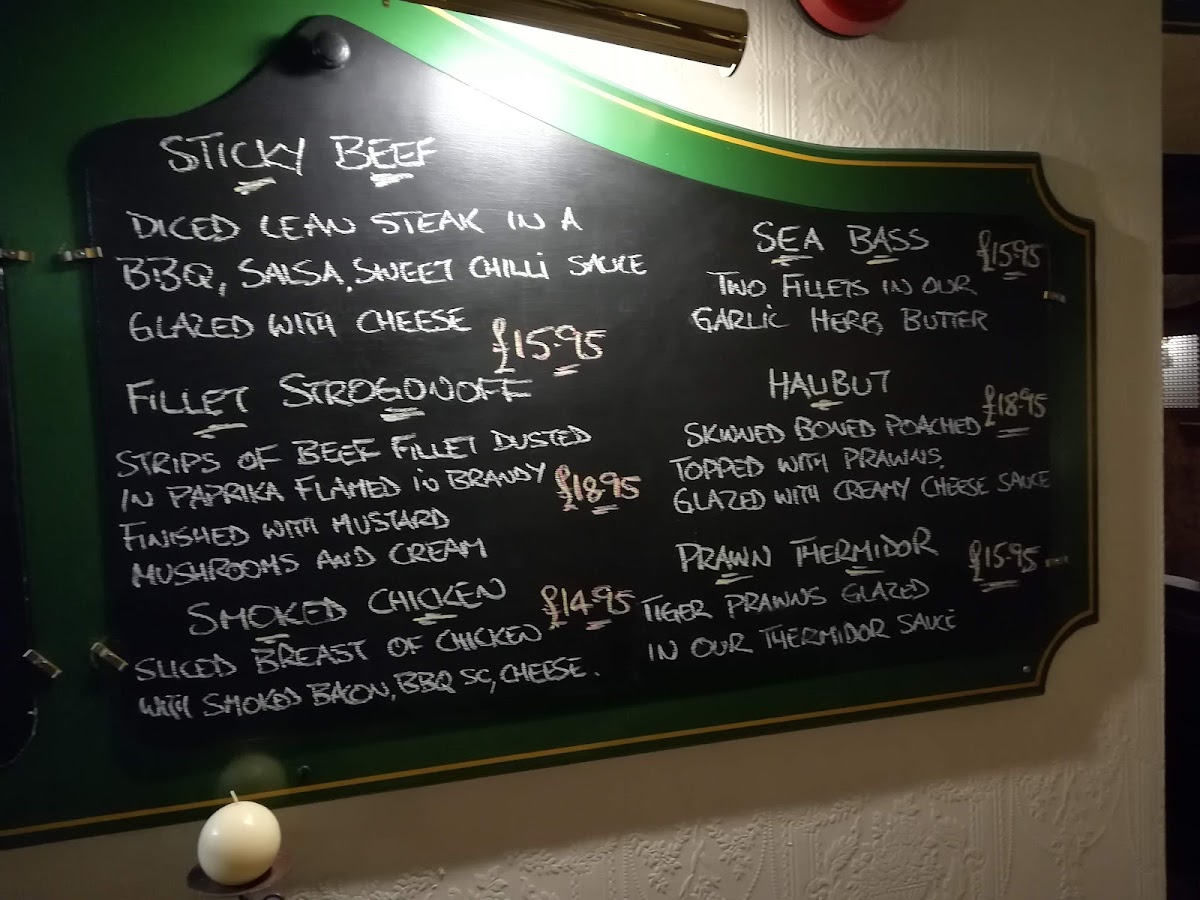 STICKY BEEF
DICED LEAN STEAK IN A
BBQ, SALSA, SWEET CHILLI SAUCE
GLAZED WITH CHEESE
£15.95
FILLET STROGONOFF
STRIPS OF BEEF FILLET DUSTED
IN PAPRIKA FLAMED IN BRANDY
£18.95
FINISHED WITH MUSTARD
MUSHROOMS AND CREAM
SMOKED CHICKEN
£14.95
SLICED BREAST OF CHICKEN
WITH SMOKED BACON, BBQ SC, CHEESE.
SEA BASS
£15.95
TWO FILLETS IN OUR
GARLIC HERB BUTTER
HALIBUT
£18.95
SKINNED BONED POACHED
TOPPED WITH PRAWNS.
GLAZED WITH CREAMY CHEESE SAUCE
PRAWN THERMIDOR
£15.95
TIGER PRAWNS GLAZED
IN OUR THERMIDOR SAUCE